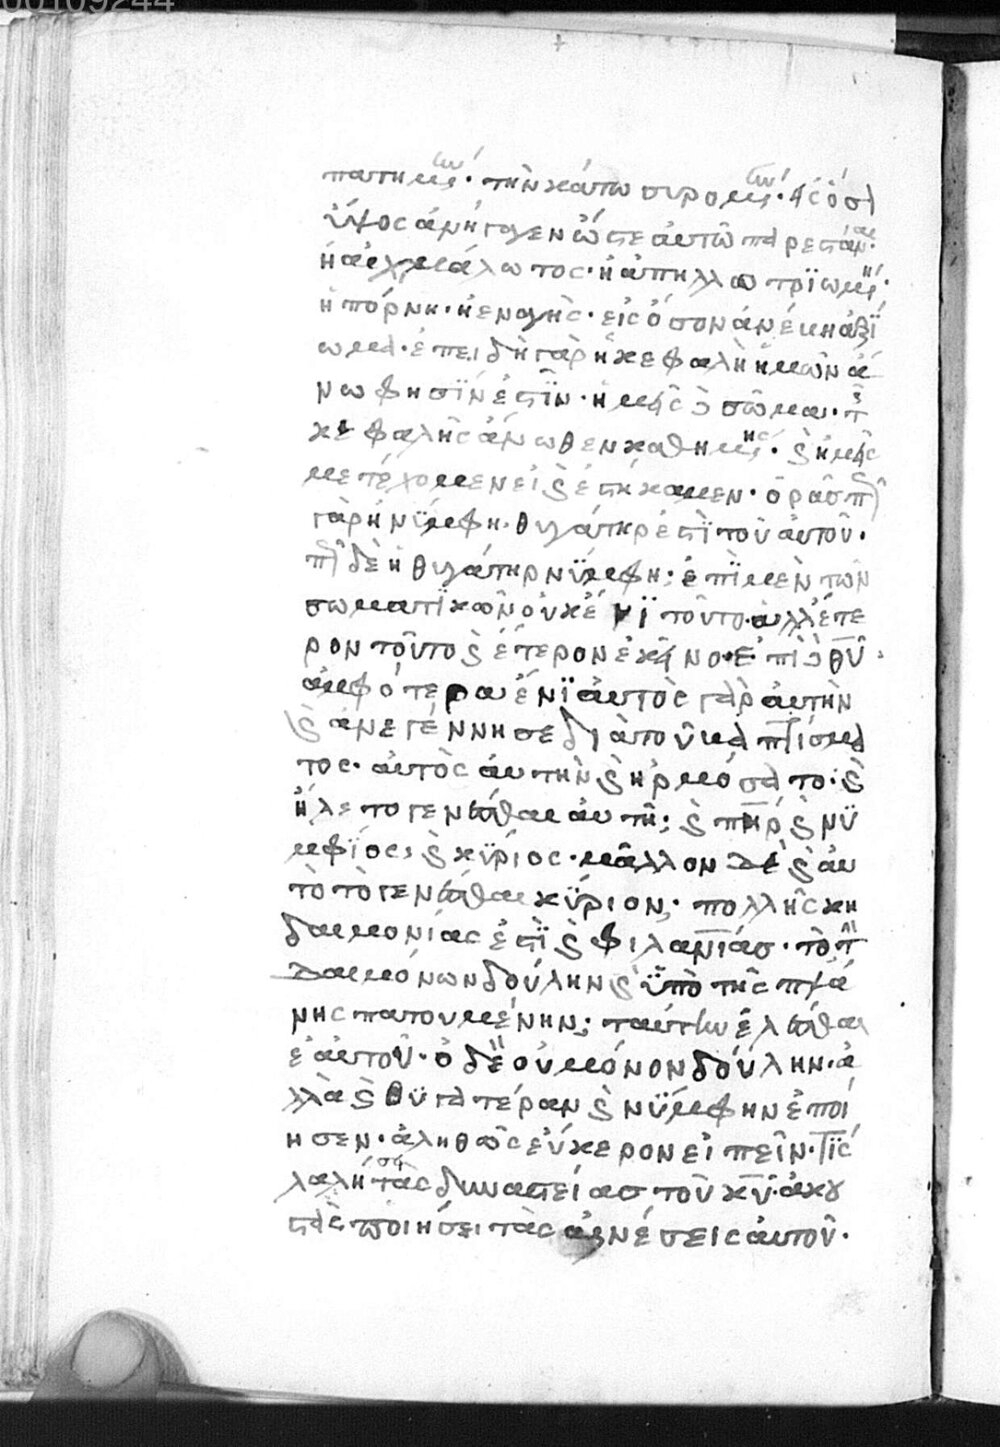 πατημένην· τὴν κάτω συρομένην· εἰς ὅσον
ὕψος ἀνήγαγεν ὥστε αὐτῶ παρεστάναι·
ἡ αἰχμάλωτος· ἡ ἀπηλλοτρϊωμένη·
ἡ πόρνη· ἡ ἐναγὴς· εἰς ὅσον ἀνέβη ἀξΐ
ωμα· ἐπειδὴ γὰρ ἡ κεφαλὴ ἡμῶν ἄ
νω φησϊν ἐστϊν· ἡμεῖς δὲ σῶμα· τῆς
κεφαλῆς ἄνωθεν καθημένης· καὶ ἡμεῖς
μετέχομεν εἰ καὶ ἑστήκαμεν· ὁρᾶς πῶς
γὰρ ἡ νϋμφη· θυγάτηρ ἐστϊ τοῦ αὐτοῦ·
πῶς δὲ ἡ θυγάτηρ νϋμφη· ἐπϊ μὲν τῶν
σωματϊκῶν οὐκ ἔνϊ τοῦτο· ἀλλ ἕτε
ρον τοῦτο καὶ ἕτερον ἐκεῖνο· ἐπὶ δὲ θυ·
ἀμφότερα ἔνϊ αὐτὸς γὰρ αὐτὴν
καὶ ἀνεγέννησε διὰ τοῦ βαπτίσμα
τος· αὐτὸς αὐτὴν καὶ ἡρμόσατο· καὶ
ἥλετο γενέσθαι αὐτῆς καὶ πηρ καὶ νϋ
μφϊος, καὶ κϋριος· μᾶλλον δὲ καὶ αυ
τὸ τὸ γενέσθαι κϋριον, πολλῆς κη
δαιμονίας ἐστϊ καὶ φιλανιας· τὸ τὴν
δαιμόνων δούλην καὶ ὑπὸ τῆς πλά
νης πατουμένην; ταύτην ἑλέσθαι
ἑαυτοῦ· ὁ δὲ οὐ μόνον δούλην· ἀ
λλὰ καὶ θϋγατέραν καὶ νϋμφην ἐποί
ησεν· ἀληθῶς εὔκερον εἰπεῖν· τϊς
λαλήσει τὰς δυναστείας τοῦ κυ· ἀκου
στὰς ποιήσει τὰς αἰνέσεις αὐτοῦ·